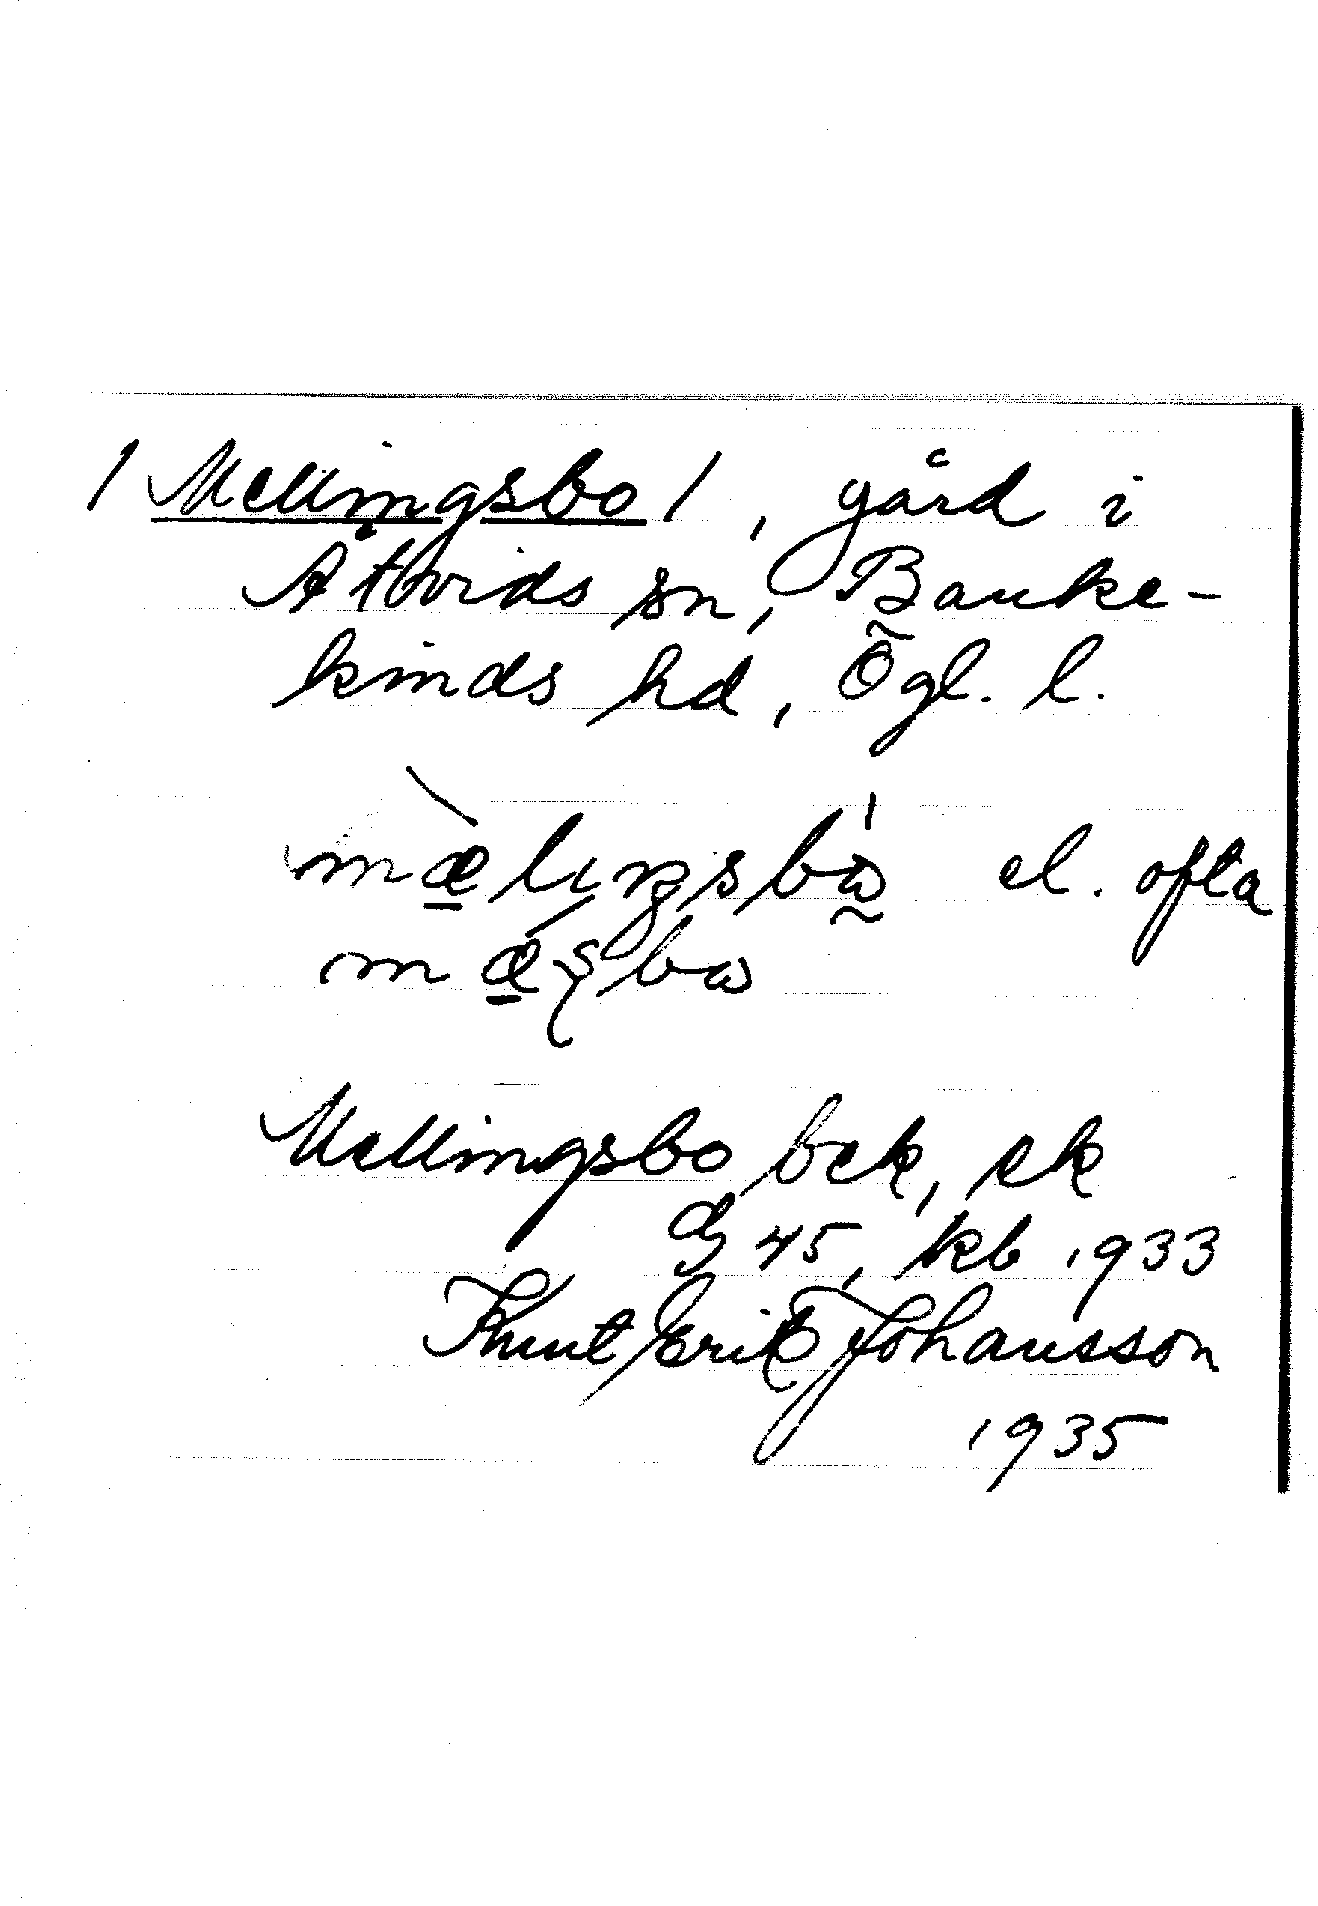 / Mellingsbo /, gård i
Åtvids sn, Banke-
kinds hd, Ögl. l.
mælıŋsbω el. ofta
bω
Mellingsbo bek, ek
45, kb 1933
Knut Erik Johansson
1935